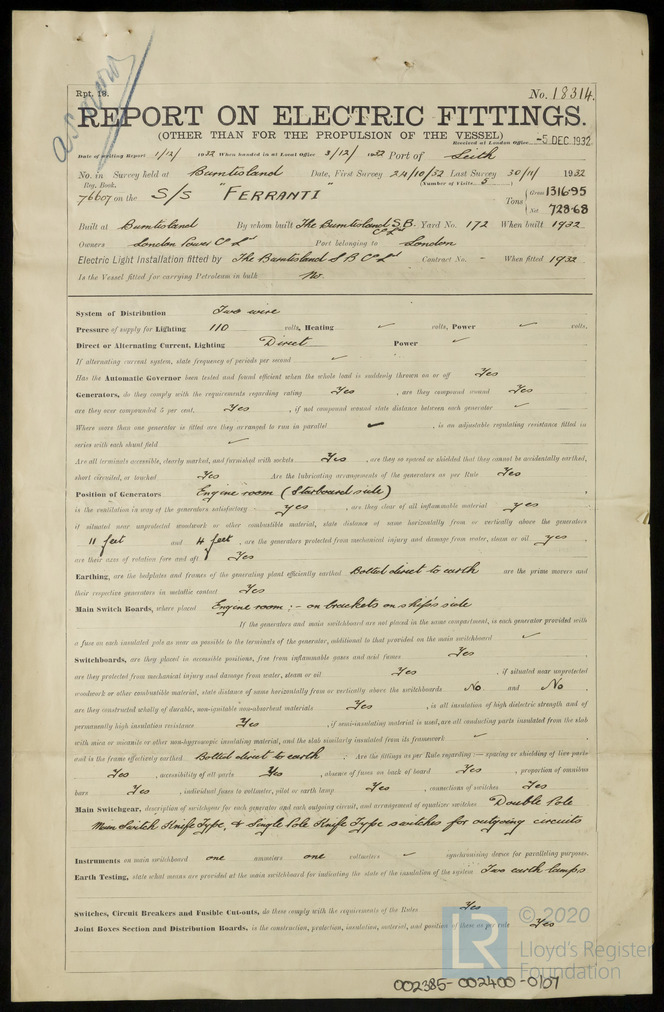 as now
Rpt. 18.
No. 18314.
REPORT ON ELECTRIC FITTINGS.
(OTHER THAN FOR THE PROPULSION OF THE VESSEL)
Received at London Office -5 DEC. 1932
Date of writing Report 1/12/ 1932 When handed in at Local Office 3/12/ 1932 Port of Leith
No. in Survey held at Burntisland Date, First Survey 24/10/32 Last Survey 30/11/ 1932
Reg. Book. (Number of Visits 5)
76607 on the S/S "FERRANTI" Tons { Gross 1316.95
Net 728.68
Built at Burntisland By whom built The Burntisland S.B. Co Ld Yard No. 172 When built 1932
Owners London Power Co Ld Port belonging to London
Electric Light Installation fitted by The Burntisland S B Co Ld Contract No. - When fitted 1932
Is the Vessel fitted for carrying Petroleum in bulk No.
System of Distribution Two wire
Pressure of supply for Lighting 110 volts, Heating ✓ volts, Power ✓ volts.
Direct or Alternating Current, Lighting Direct Power ✓
If alternating current system, state frequency of periods per second ✓
Has the Automatic Governor been tested and found efficient when the whole load is suddenly thrown on or off Yes
Generators, do they comply with the requirements regarding rating Yes , are they compound wound Yes
are they over compounded 5 per cent. Yes , if not compound wound state distance between each generator ✓
Where more than one generator is fitted are they arranged to run in parallel ✓ , is an adjustable regulating resistance fitted in
series with each shunt field ✓
Are all terminals accessible, clearly marked, and furnished with sockets Yes , are they so spaced or shielded that they cannot be accidentally earthed,
short circuited, or touched Yes Are the lubricating arrangements of the generators as per Rule Yes
Position of Generators Engine room (Starboard side)
is the ventilation in way of the generators satisfactory - yes , are they clear of all inflammable material yes
if situated near unprotected woodwork or other combustible material, state distance of same horizontally from or vertically above the generators
11 feet and 4 feet , are the generators protected from mechanical injury and damage from water, steam or oil yes
are their axes of rotation fore and aft Yes
Earthing, are the bedplates and frames of the generating plant efficiently earthed Bolted direct to earth are the prime movers and
their respective generators in metallic contact Yes
Main Switch Boards, where placed Engine room :- on brackets on ship's side
If the generators and main switchboard are not placed in the same compartment, is each generator provided with
a fuse on each insulated pole as near as possible to the terminals of the generator, additional to that provided on the main switchboard ✓
Switchboards, are they placed in accessible positions, free from inflammable gases and acid fumes Yes
are they protected from mechanical injury and damage from water, steam or oil Yes , if situated near unprotected
woodwork or other combustible material, state distance of same horizontally from or vertically above the switchboards No and No
are they constructed wholly of durable, non-ignitable non-absorbent materials Yes , is all insulation of high dielectric strength and of
permanently high insulation resistance Yes , if semi-insulating material is used, are all conducting parts insulated from the slab
with mica or micanite or other non-hygroscopic insulating material, and the slab similarly insulated from its framework ✓
and is the frame effectively earthed Bolted direct to earth . Are the fittings as per Rule regarding :- spacing or shielding of live parts
Yes , accessibility of all parts Yes , absence of fuses on back of board Yes , proportion of omnibus
bars Yes , individual fuses to voltmeter, pilot or earth lamp Yes , connections of switches Yes
Main Switchgear, description of switchgear for each generator and each outgoing circuit, and arrangement of equalizer switches Double Pole
Main Switch Knife Type, & Single Pole Knife Type switches for outgoing circuits
Instruments on main switchboard one ammeters one voltmeters ✓ synchronising device for paralleling purposes.
Earth Testing, state what means are provided at the main switchboard for indicating the state of the insulation of the system Two earth lamps
Switches, Circuit Breakers and Fusible Cut-outs, do these comply with the requirements of the Rules Yes
Joint Boxes Section and Distribution Boards, is the construction, protection, insulation, material, and position of these as per rule Yes
LR © 2020
Lloyd's Register
Foundation
002385-002400-0107